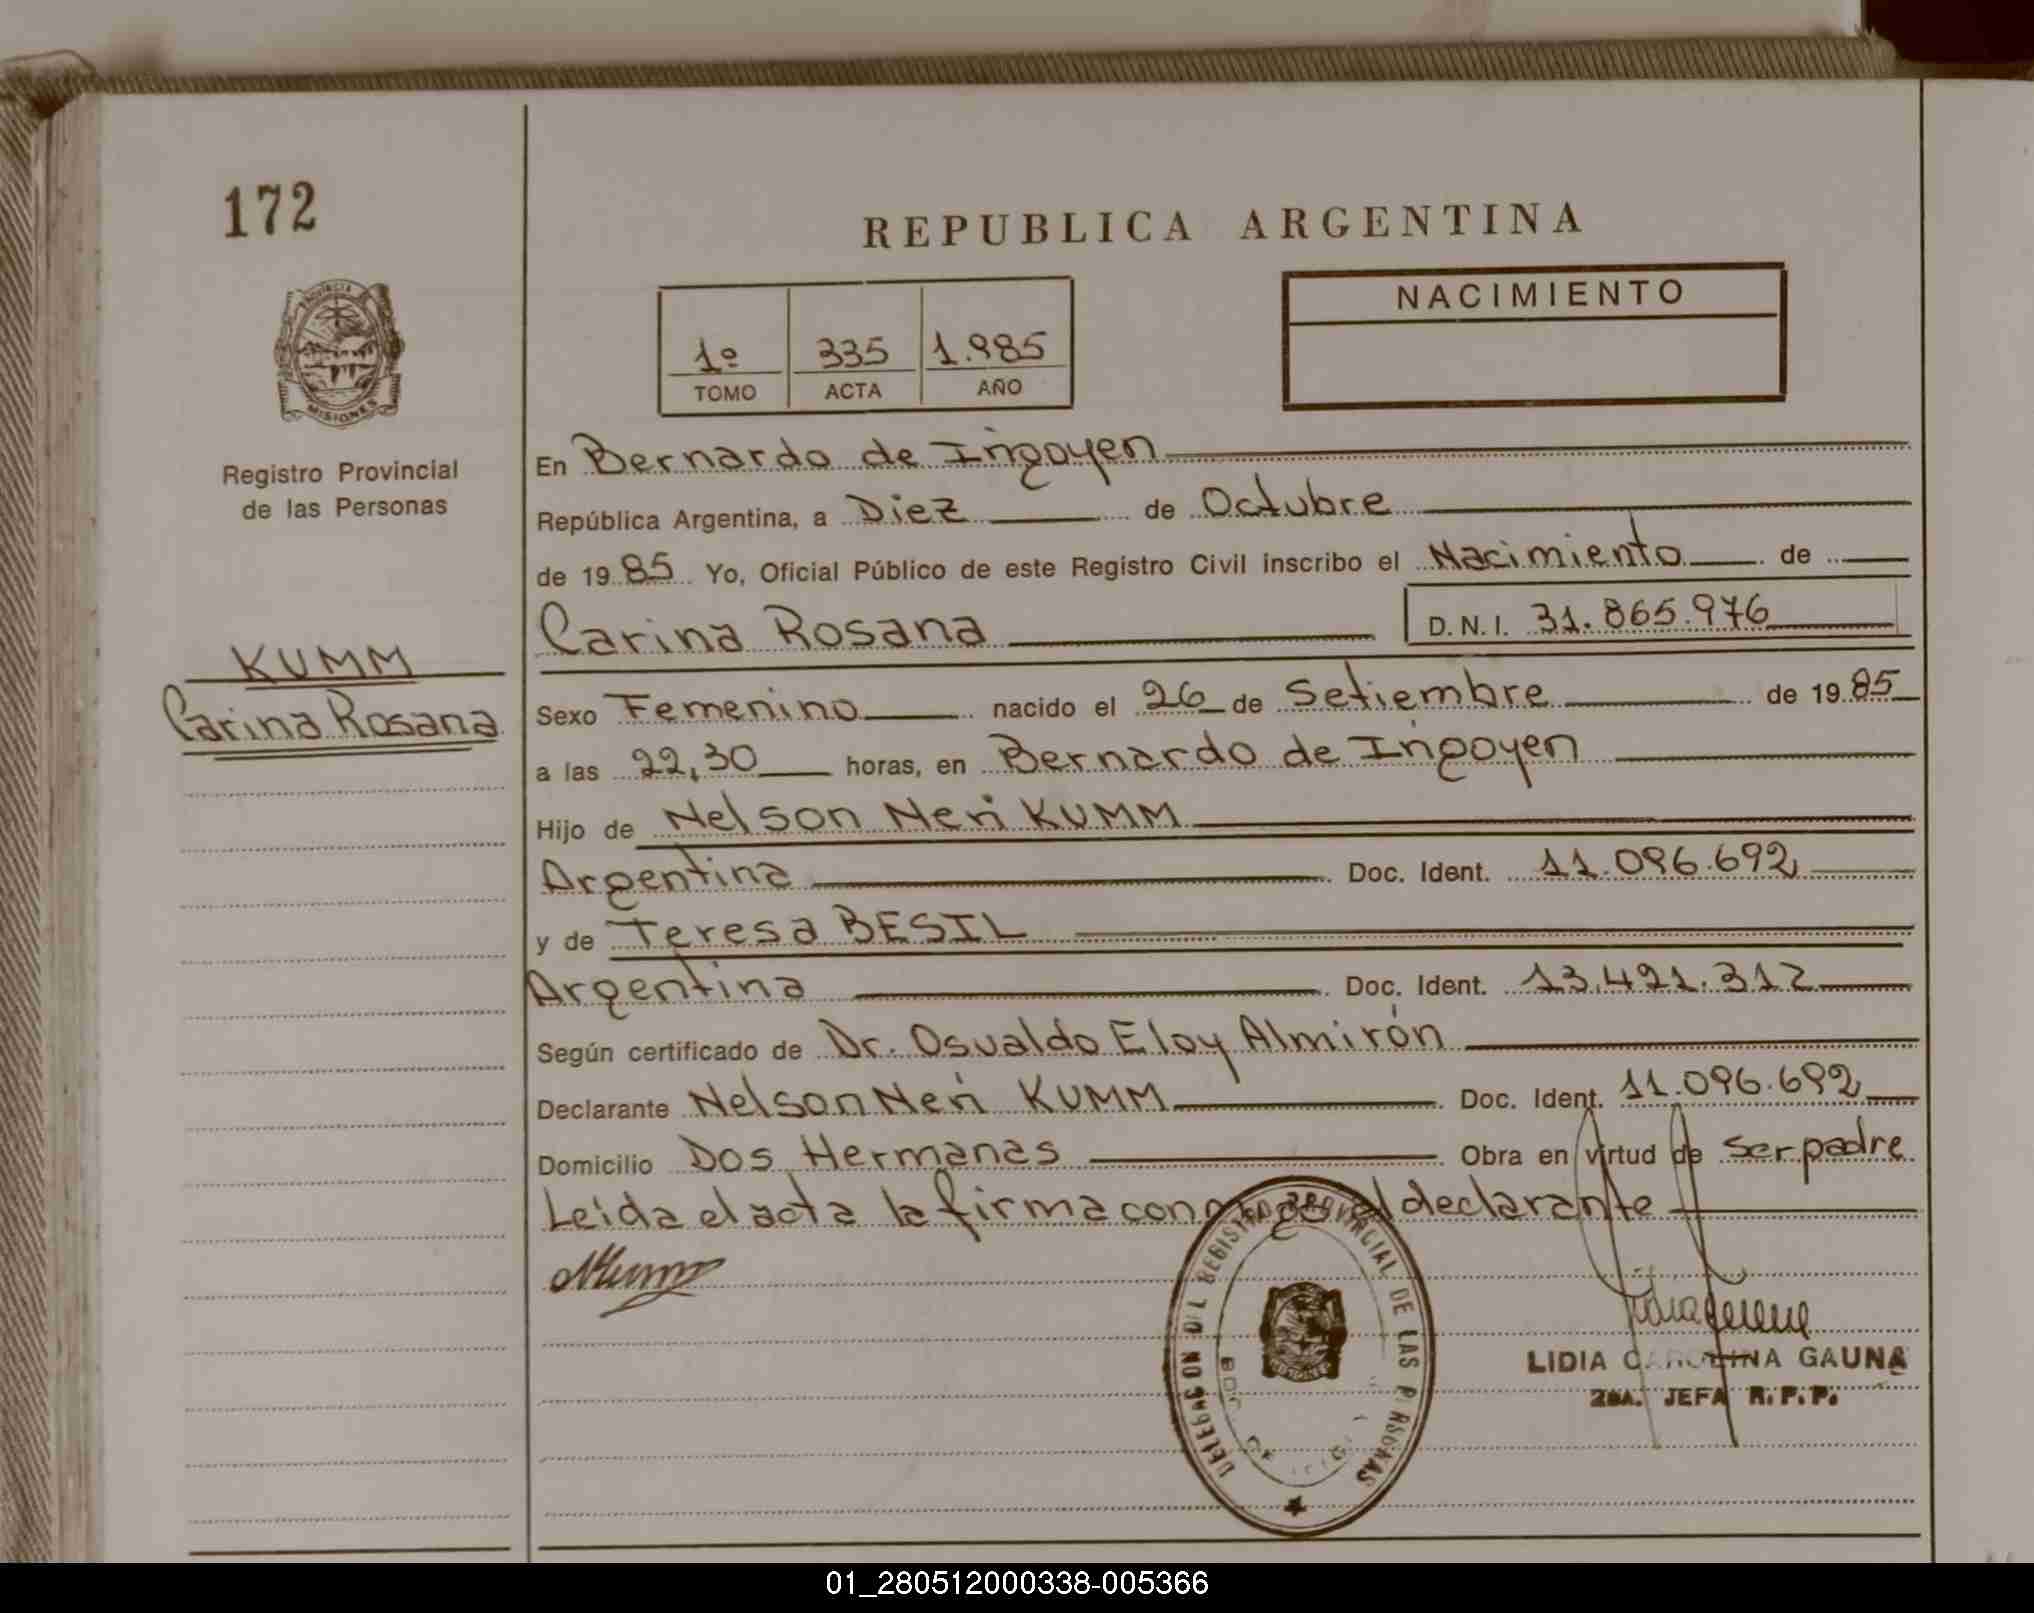 172
REPUBLICA ARGENTINA
PROVINCIA DE
MISIONES
Registro Provincial
de las Personas
1º 335 1.985
TOMO ACTA AÑO
NACIMIENTO
KUMM
Carina Rosana
En Bernardo de Irigoyen
República Argentina, a Diez de Octubre
de 1985 Yo, Oficial Público de este Registro Civil inscribo el Nacimiento de
Carina Rosana D.N.I. 31.865.976
Sexo Femenino nacido el 26 de Setiembre de 1985
a las 22,30 horas, en Bernardo de Irigoyen
Hijo de Nelson Neri KUMM
Argentina Doc. Ident. 11.096.692
y de Teresa BESIL
Argentina Doc. Ident. 13.421.312
Según certificado de Dr. Osvaldo Eloy Almirón
Declarante Nelson Neri KUMM Doc. Ident. 11.096.692
Domicilio Dos Hermanas Obra en virtud de ser padre
Leída el acta la firma conmigo el declarante
DELEGACION DEL REGISTRO PROVINCIAL DE LAS PERSONAS
MISIONES
LIDIA CAROLINA GAUNA
2DA. JEFA R.P.P.
01_280512000338-005366